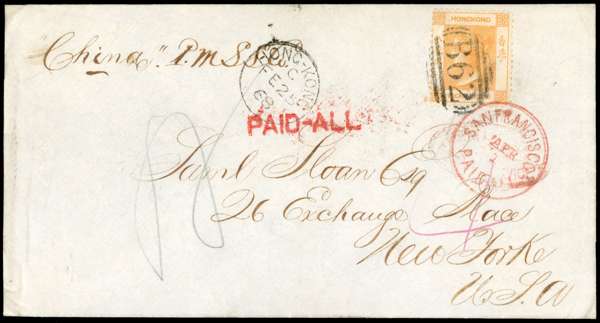 "China" P.M.S.S. Co
HONGKONG
B62
HONG-KONG
C
FE 2
68
PAID-ALL
SAN FRANCISCO
APR
PAID
Saml Sloan Esq
26 Exchange Place
New York
U.S.A